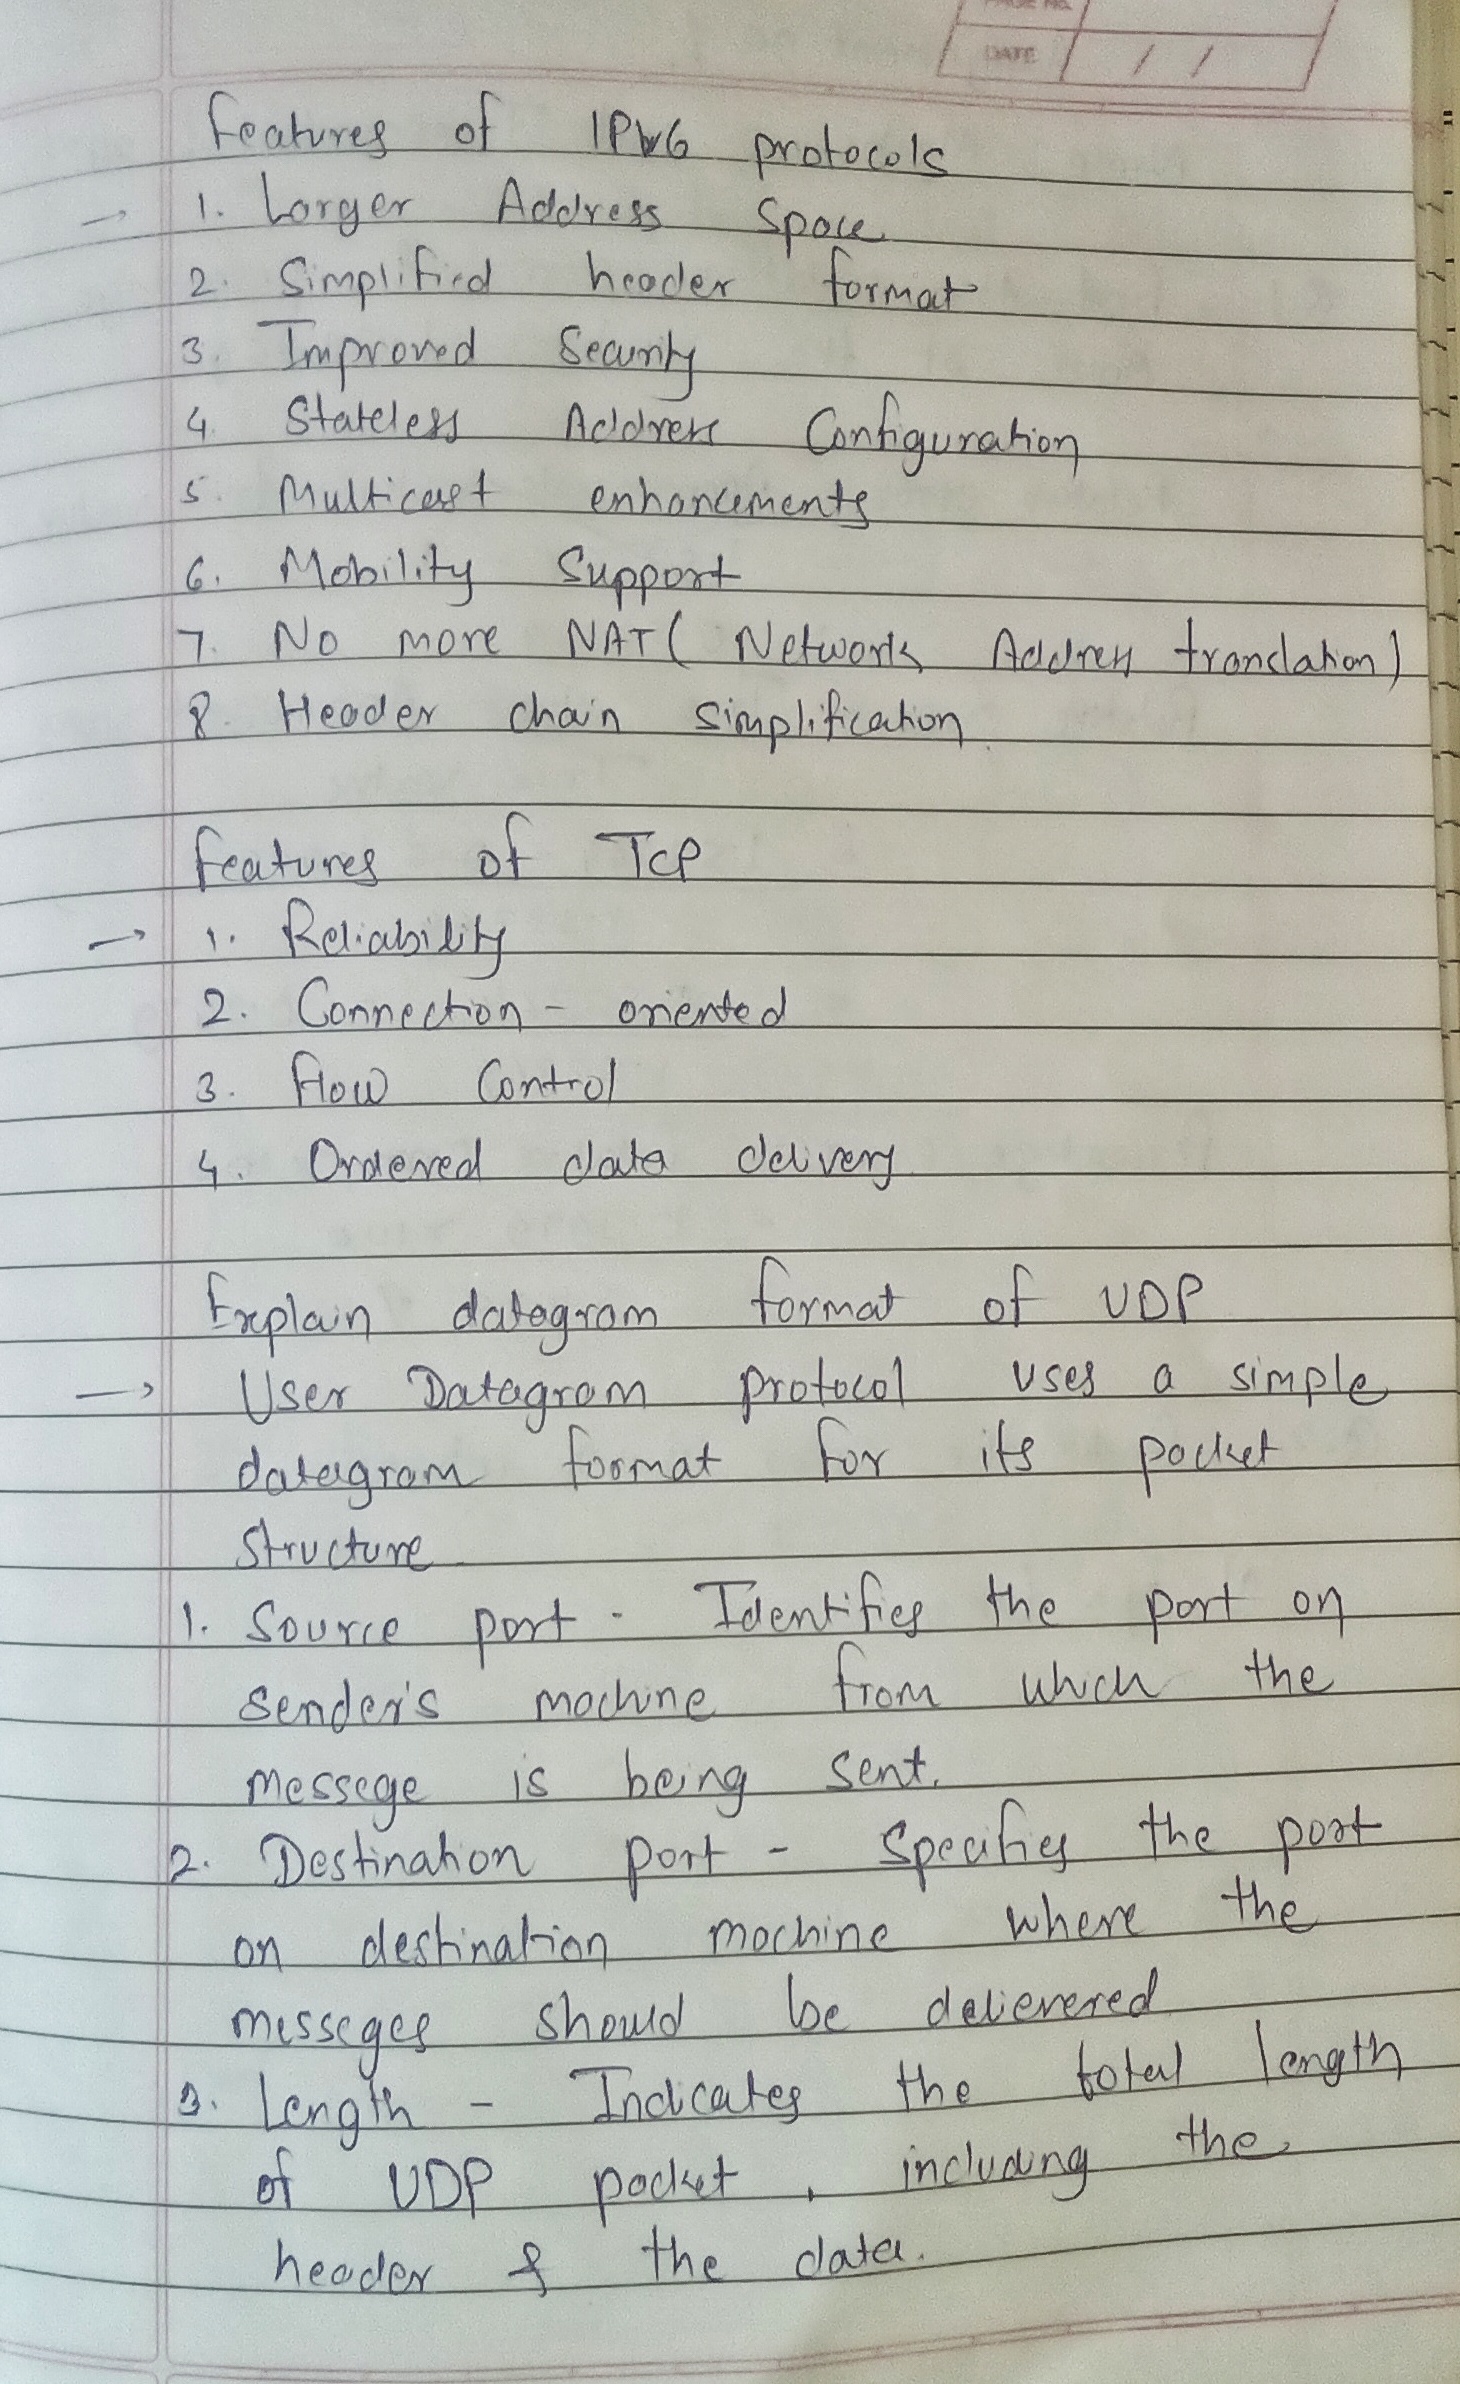 PAGE NO.
DATE / /
Features of IPv6 protocols
→ 1. Larger Address Space
2. Simplified header format
3. Improved Security
4. Stateless Address Configuration
5. Multicast enhancements
6. Mobility Support
7. No more NAT( Network Address translation)
8. Header chain simplification.
Features of TCP
→ 1. Reliability
2. Connection - oriented
3. Flow Control
4. Ordered data delivery
Explain datagram format of UDP
→ User Datagram protocol uses a simple
datagram format for its packet
structure
1. Source port - Identifies the port on
sender's machine from which the
messege is being sent.
2. Destination port - Specifies the port
on destination machine where the
messeges should be delievered
3. Length - Indicates the total length
of UDP packet, including the
header & the data.